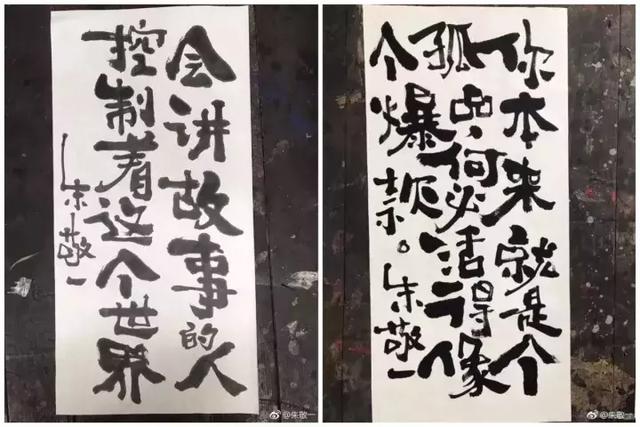 会讲故事的人
控制着这个世界
朱敬一
@朱敬一
你本来就是个
孤品，何必活得像
个爆款。朱敬一
@朱敬一